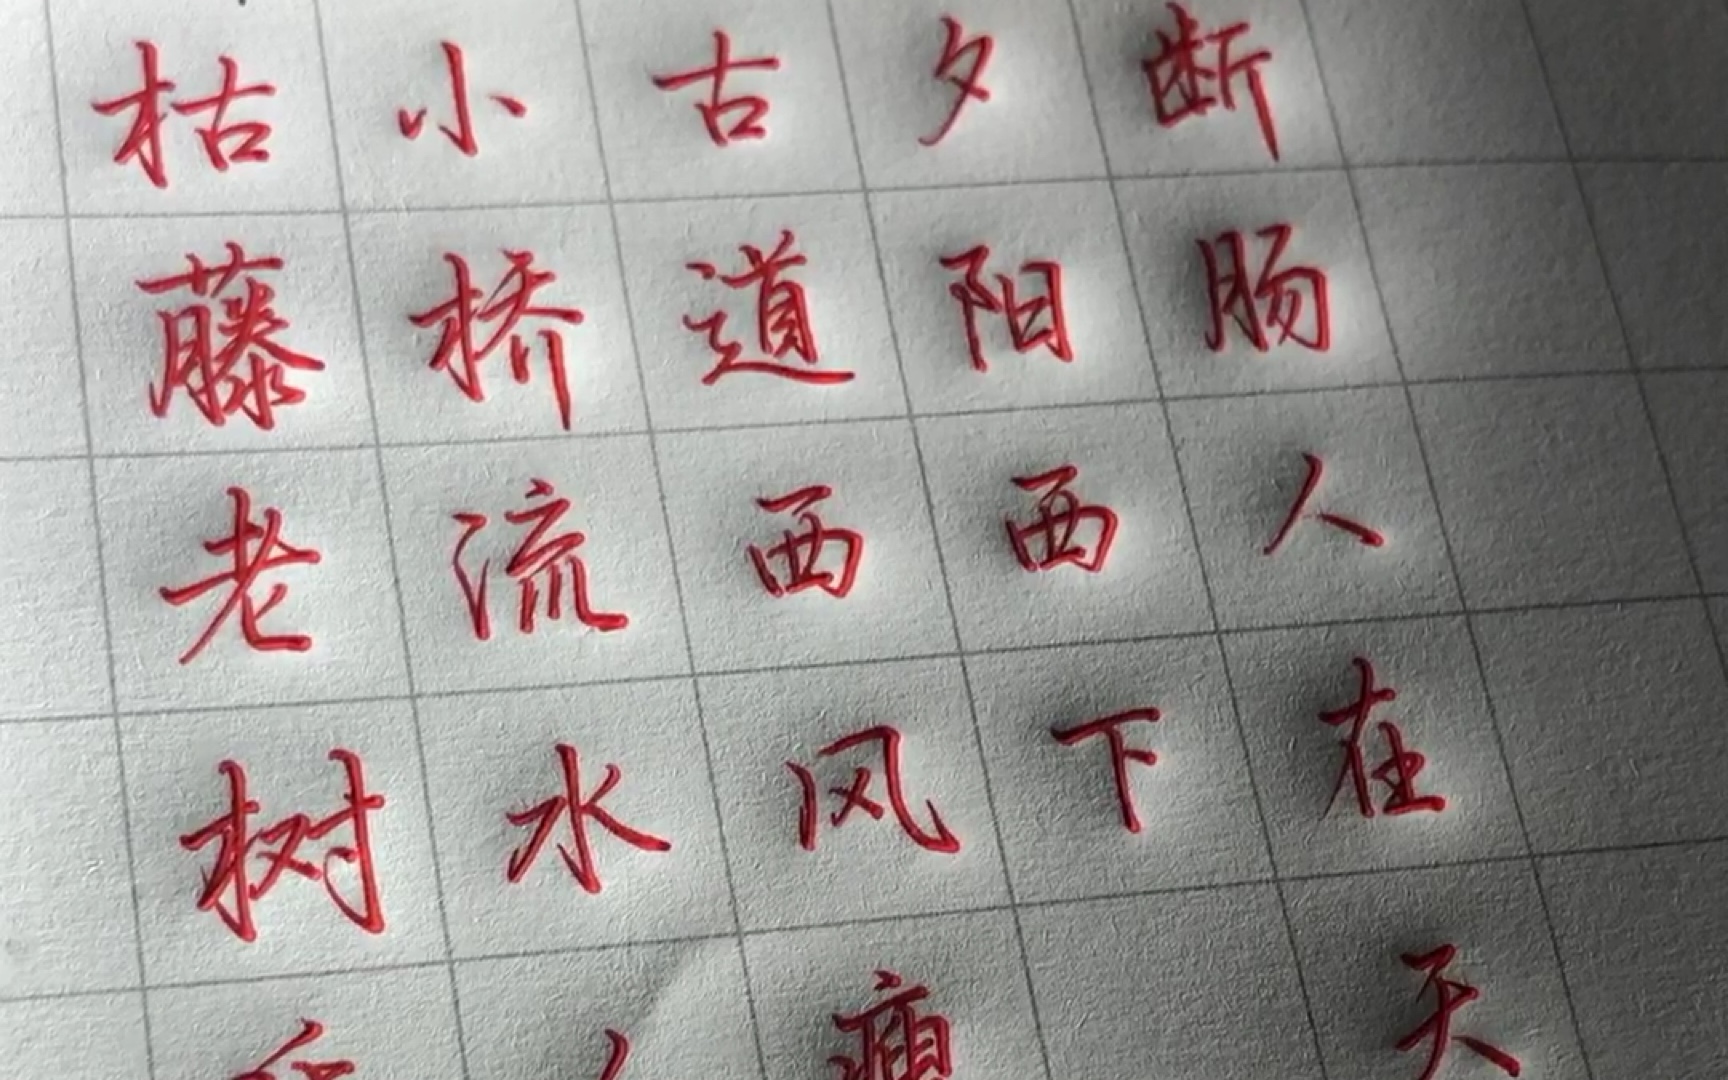 枯藤老树
小桥流水
古道西风瘦
夕阳西下
断肠人在天